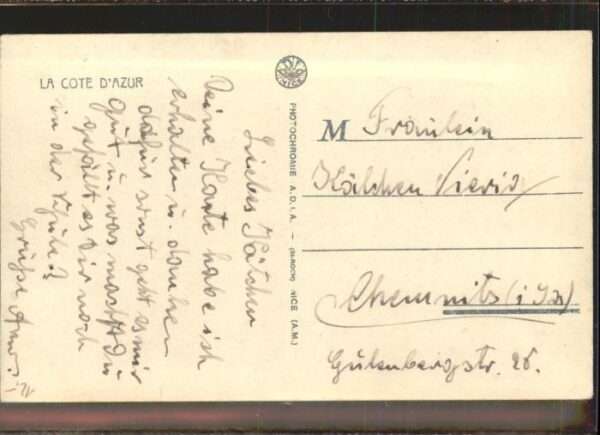 LA COTE D'AZUR
Liebes Kätchen
Deine Karte habe ich
erhalten u. danken
dafür sonst geht es mir
gut u. was machst Du
gefällt es Dir noch
in der Schule?
Grüße
PHOTOCHROMIE A.D.I.A. — NICE (A.M.)
M Fräulein
Kätchen
Chemnitz (i/Sa)
Gutenbergstr. 28.